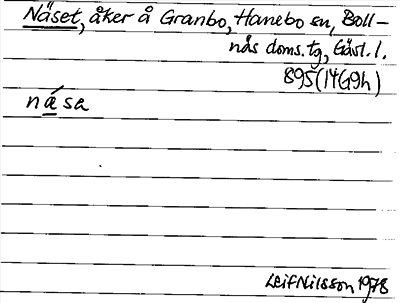 Näset, åker å Granbo, Hanebo sn, Boll-
näs doms.tg, Gävl.l.
895(14G9h)
nása
Leif Nilsson 1978